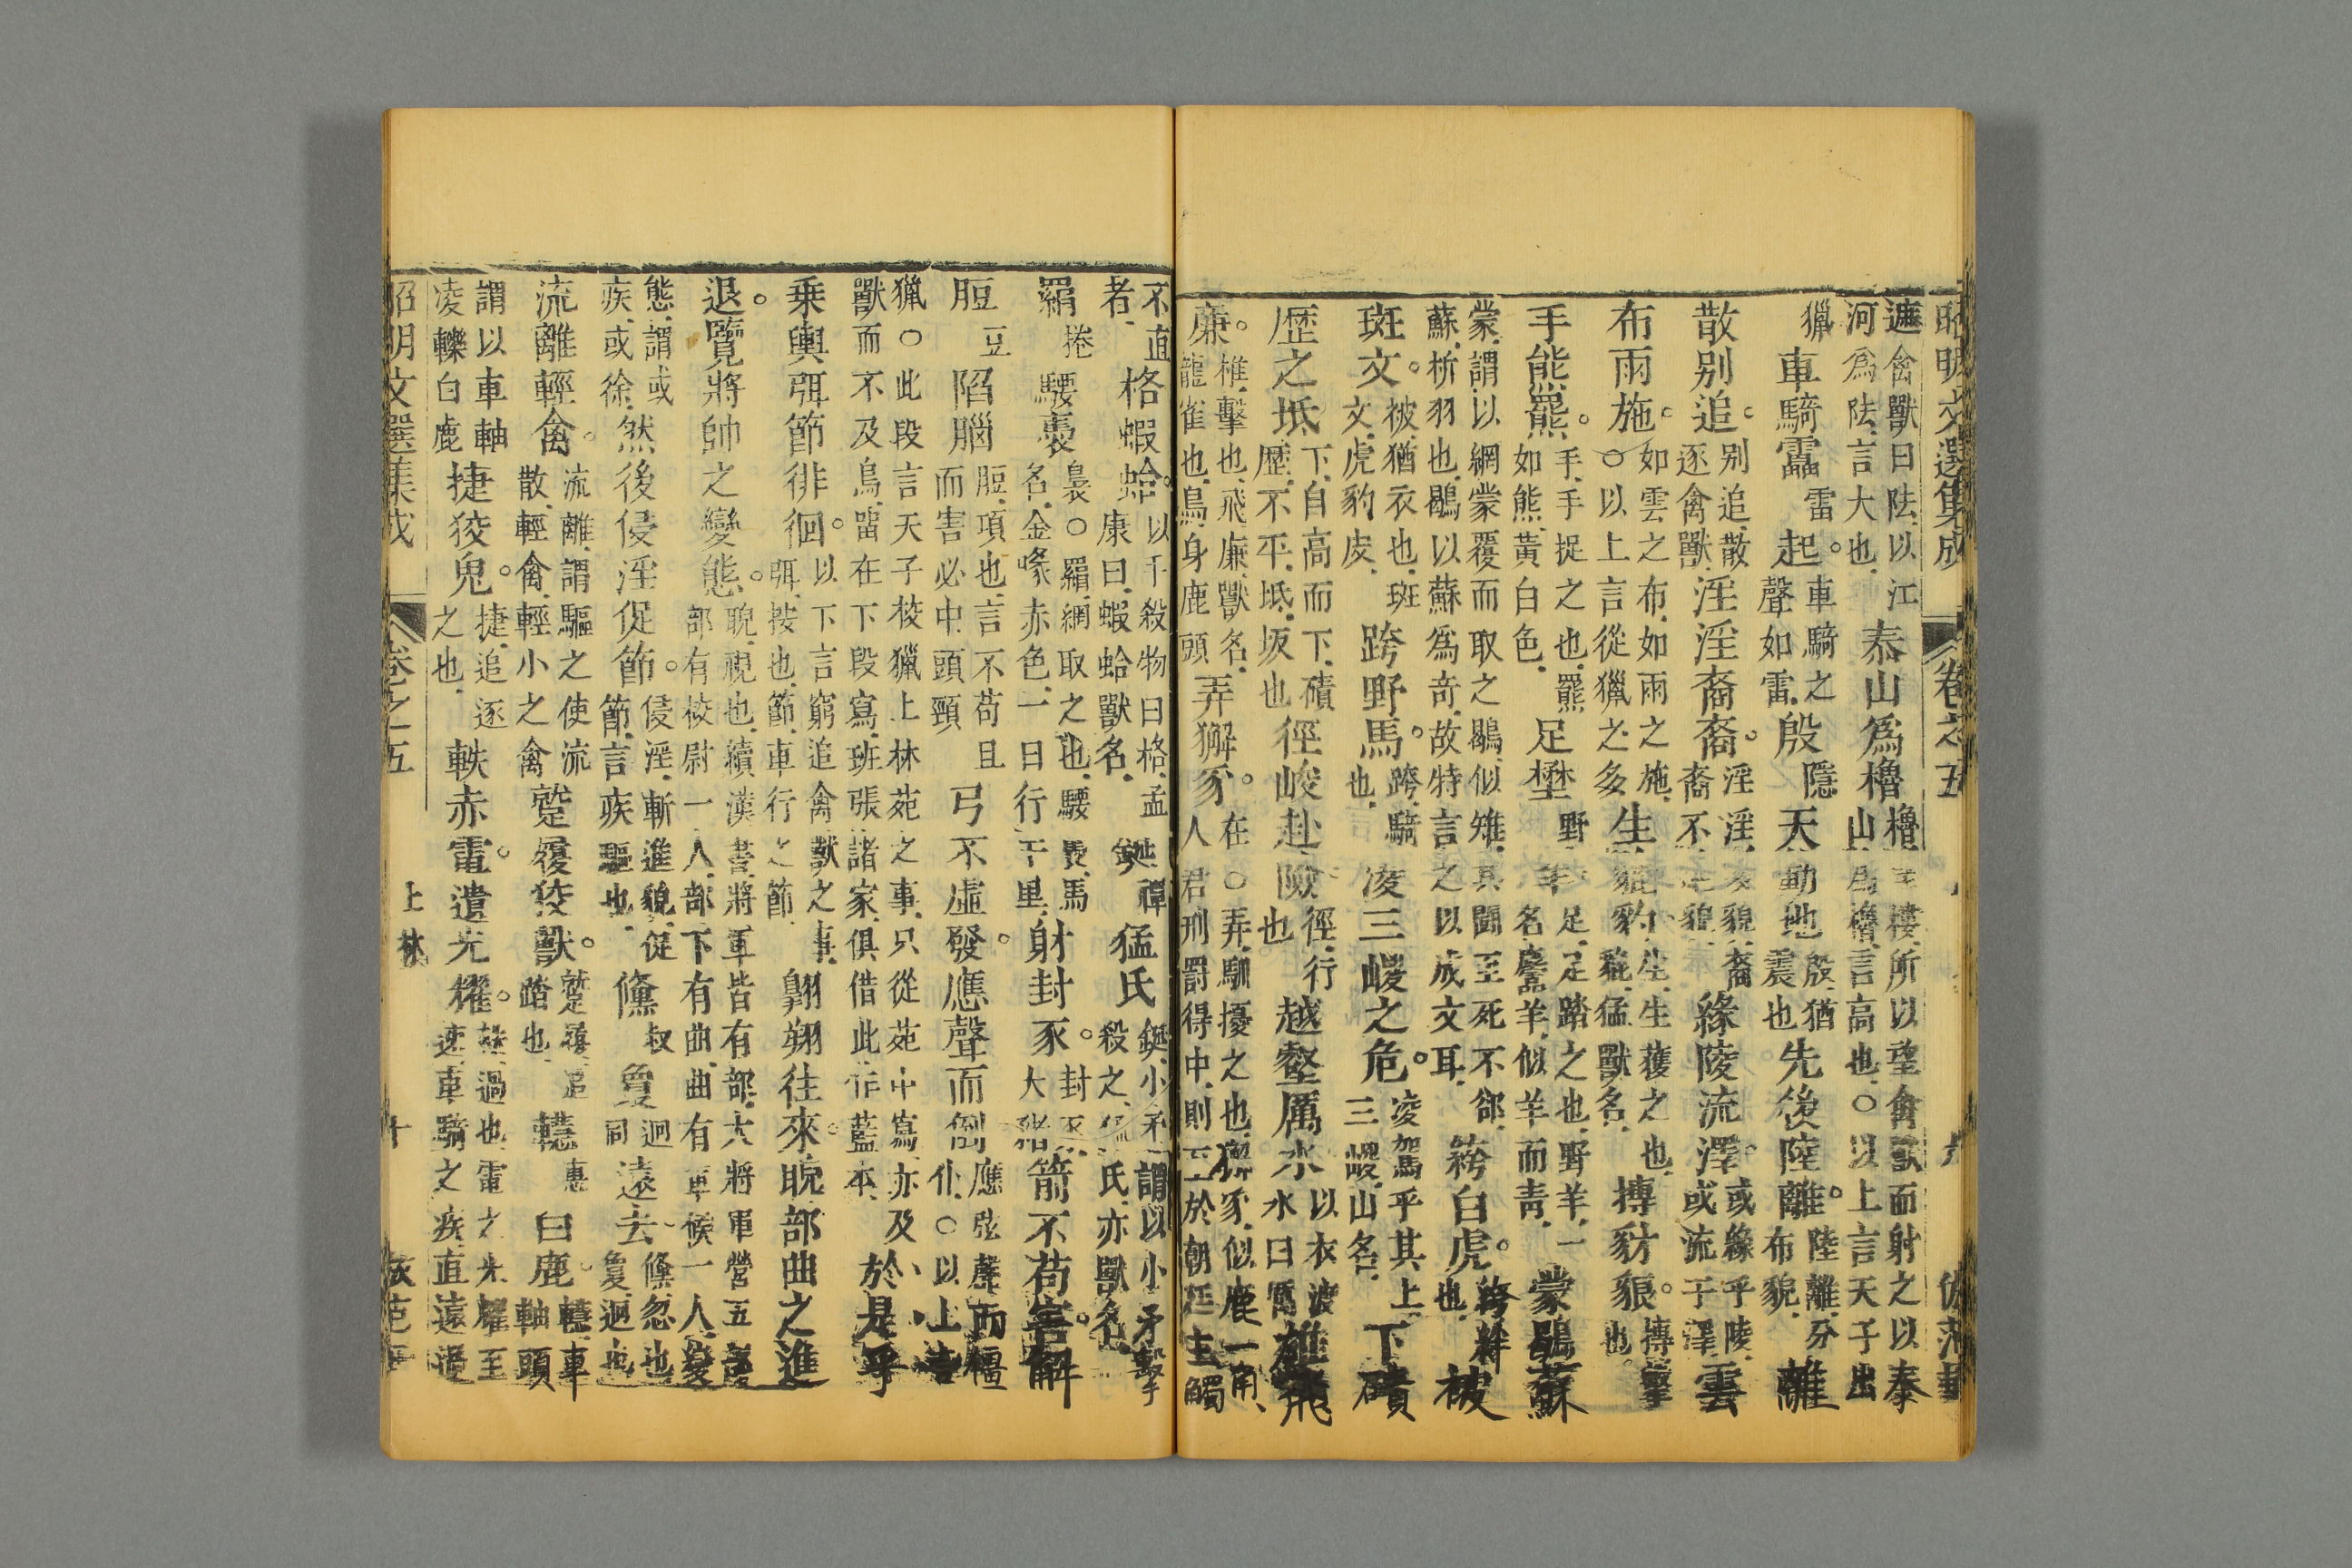 昭明文選集成 卷之五
遮禽獸曰阹以江河爲阹言大也 泰山爲櫓 櫓 樓所以望禽獸而射之以泰山爲櫓言高也○以上言天子出
獵 車騎靁 雷 起 車騎之聲如雷 殷 隱 天動地 殷猶震也 先後陸離 陸離分布貌 離
散别追 别追散逐禽獸 淫淫裔裔 淫淫裔裔 貌 緣陵流澤 或緣乎陵或流于澤 雲
布雨施 如雲之布如雨之施○以上言從獵之多 生貔豹 生生獲之也貔猛獸名 搏豺狼 搏擊也
手熊羆 手手捉之也羆如熊黃白色 足壄 野 羊 足足踏之也野羊一名麢羊似羊而青 蒙鶡蘇
蒙謂以網蒙覆而取之鶡似雉其鬬至死不郤蘇析羽也鶡以蘇爲奇故特言之以成文耳 絝白虎 絝絆也 被
斑文 被猶衣也班文虎豹皮 跨野馬 跨騎也 凌三嵕之危 凌駕乎其上三嵕山名 下磧
歷之坻 下自高而下磧歷不平坻坂也 徑峻赴險 徑行也 越壑厲水 以衣渡水曰厲 椎飛
廉 椎擊也飛廉獸名龍雀也鳥身鹿頭 弄獬豸 在○弄馴擾之也獬豸似鹿一角人君刑罰得中則王於朝廷主觸
不直者 格蝦蛤 以手殺物曰格孟康曰蝦蛤獸名 鋋 禪 猛氏 鋋小矛謂以小矛擊殺之猛氏亦獸名
羂 捲 騕褭 裊○羂網取之也騕褭馬名金喙赤色一日行千里 射封豕 封豕大豬 箭不苟害解
脰 豆 陷腦 脰項也言不苟且而害必中頭頸 弓不虛發應聲而倒 應弦聲而殭仆○以上言
獵○此段言天子校獵上林苑之事只從苑中寫亦及獸而不及鳥留在下段寫班張諸家俱借此作藍本 於是乎
乗輿弭節徘徊 以下言窮追禽獸之事弭按也節車行之節 翺翔往來睨部曲之進
退覽將帥之變態 睨視也續漢書將軍皆有部大將軍營五部部有校尉一人部下有曲曲有軍候一人變
態謂或疾或徐 然後侵淫促節 侵淫漸進貌促節言疾驅也 儵 叔 敻 迥 遠去 儵忽也敻迥也
流離輕禽 流離謂驅之使流散輕禽輕小之禽 蹵履狡獸 蹵履踏也 轊 惠 白鹿 轊車軸頭
謂以車軸凌轢白鹿 捷狡兎 捷追逐之也 軼赤電遺光耀 軼過也電之光耀至速車騎之疾直遠過
昭明文選集成 卷之五 上林 十